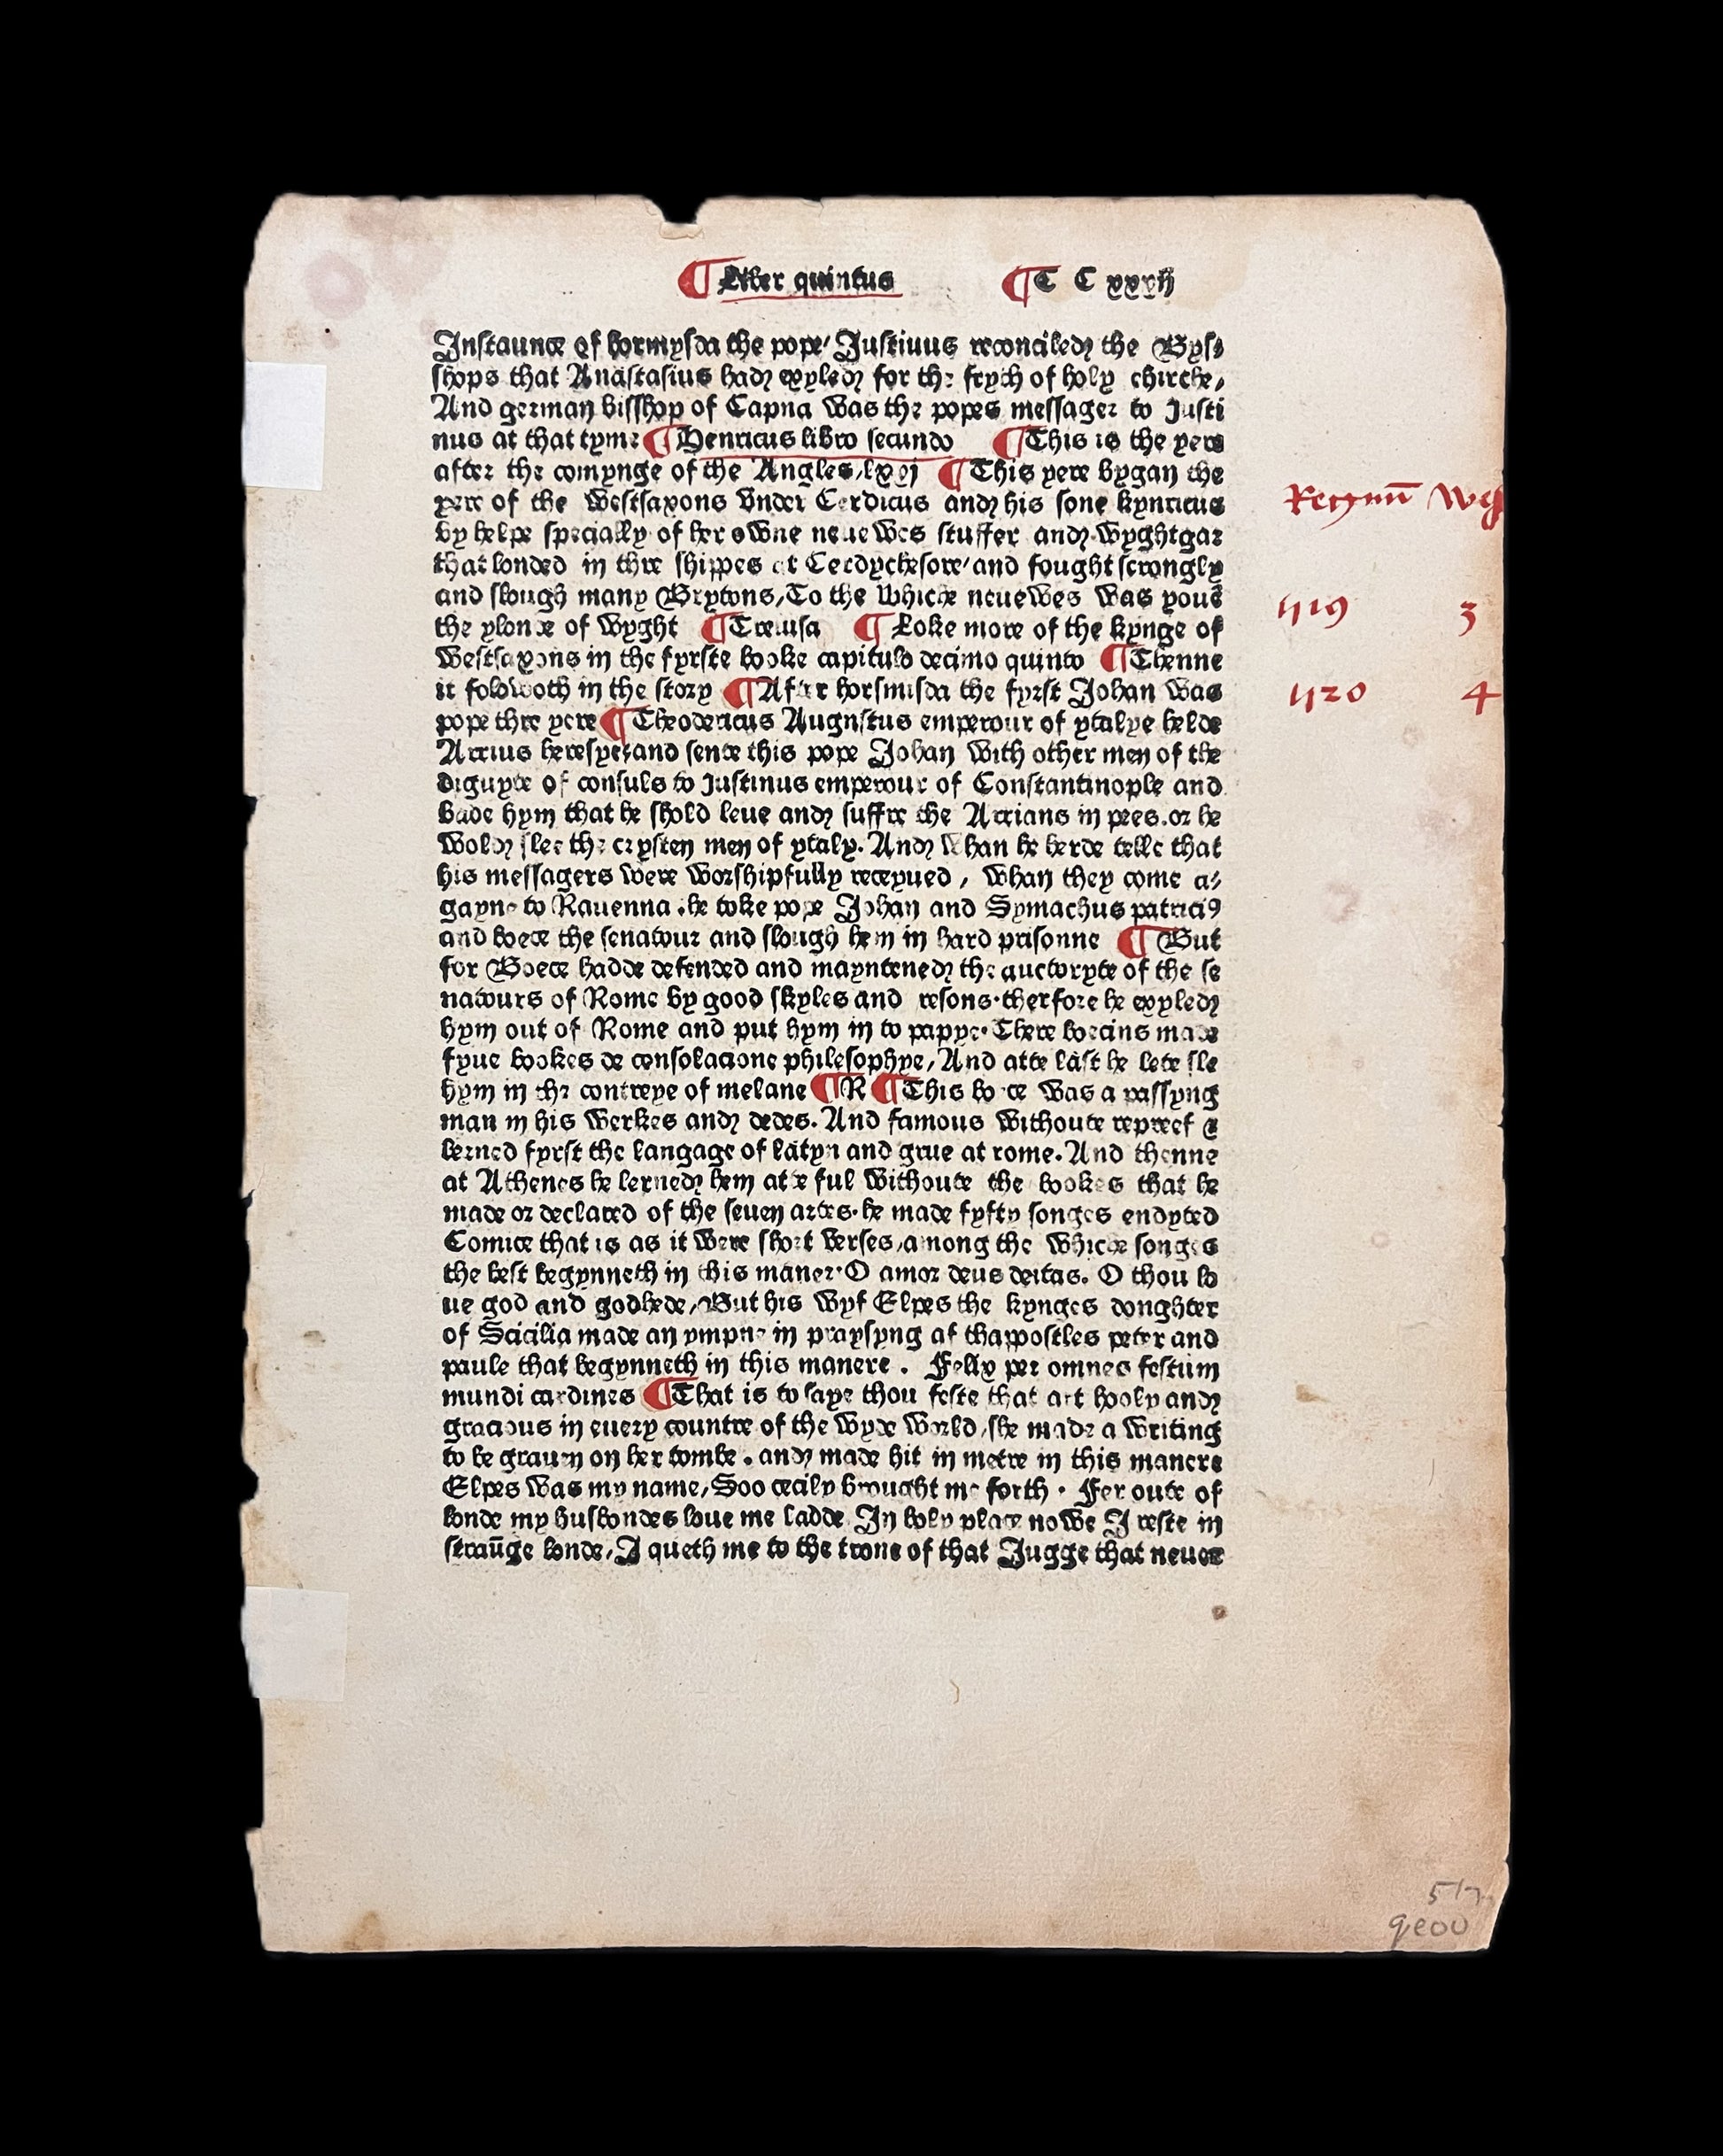 ¶ Liber quintus ¶ C C xxxij
Instaunce of hormysda the pope/ Justiuus reconciled the Bys/
shops that Anastasius had exyled for the feyth of holy chirche,
And german bisshop of Capna was the popes messager to Justi
nus at that tyme ¶ Henricus libro secundo ¶ This is the yere
after the comynge of the Angles, lxxj ¶ This yere bygan the
yere of the westsaxons vnder Cerdicus and his sone kynricus
by helpe specially of her owne neuewes stuffer and wyghtgar
that londed in thre shippes at Cerdychesore/ and fought strongly
and slough many Brytons, To the whiche neuewes was youē
the ylonde of wyght ¶ Treuisa ¶ Loke more of the kynge of
westsaxons in the fyrste booke capitulo decimo quinto ¶ Thenne
it folowoth in the story ¶ After horsmisda the fyrst Johan was
pope thre yere ¶ Theodericus Augnstus emperour of ytalye helde
Arrius heresye, and sente this pope Johan with other men of the
diguyte of consuls to Justinus emperour of Constantinople and
bade hym that he shold leue and suffre the Arrians in pees. or he
wold slee the crysten men of ytaly. And whan he herde telle that
his messagers were worshipfully receyued, whan they come a/
gayne to Rauenna. he toke pope Johan and Symachus patriciꝯ
and boece the senatour and slough hem in hard prisonne ¶ But
for Boece hadde defended and mayntened the auctoryte of the se
natours of Rome by good skyles and resons. therfore he exyled
hym out of Rome and put hym in to papye. There boecins made
fyue bookes de consolacione philesophye, And atte last he lete sle
hym in the contreye of melane ¶ R ¶ This boece was a passyng
man in his werkes and dedes. And famous withoute repreef &
lerned fyrst the langage of latyn and grue at rome. And thenne
at Athenes he lerned hem atte ful withoute the bookes that he
made or declared of the seuen artes. he made fyfty songes endyted
Comice that is as it were short verses, among the whiche songes
the best begynneth in this maner. O amor deus deitas. O thou lo
ue god and godhede, But his wyf Elpes the kynges donghter
of Scicilia made an ympne in praysyng af thappostles peter and
paule that begynneth in this manere. Felix per omnes festum
mundi cardines ¶ That is to saye thou feste that art hooly and
gracious in euery countre of the wyde world, she made a writing
to be grauen on her tombe. and made hit in metre in this manere
Elpes was my name, Soo cecily brought me forth. Fer oute of
londe my husbondes loue me ladde In holy place nowe I reste in
straūge londe, I queth me to the trone of that Jugge that neuer
Regnum̄ Wes
519 3
520 4